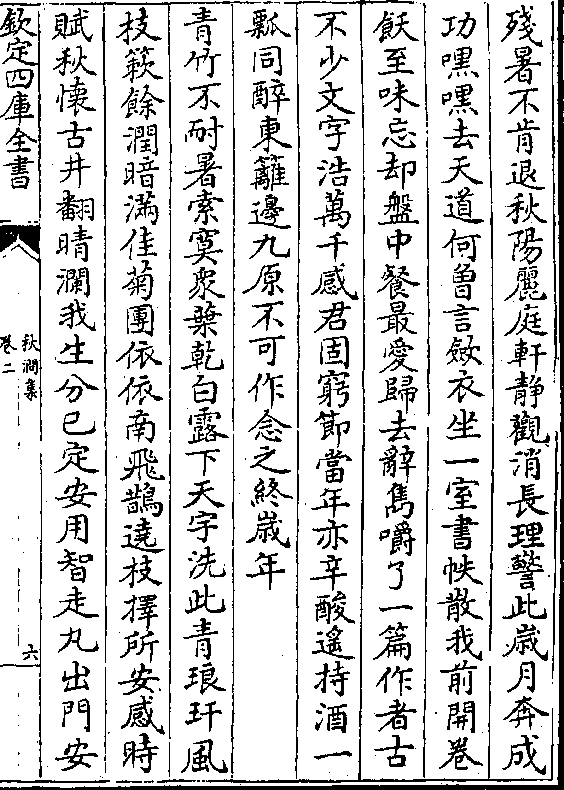 殘暑不肯退秋陽麗庭軒靜觀消長理警此歲月奔成
功嘿嘿去天道何曾言斂衣坐一室書帙散我前開卷
飫至味忘却盤中餐最愛歸去辭雋嚼了一篇作者古
不少文字浩萬千感君固窮節當年亦辛酸遙持酒一
瓢同醉東籬邊九原不可作念之終歲年
青竹不耐暑索寞衆葉乾白露下天宇洗此青琅玕風
枝蔌餘潤暗滿佳菊團依依南飛鵲遶枝擇所安感時
賦秋懷古井翻晴瀾我生分已定安用智走丸出門安
欽定四庫全書
秋澗集
卷二
六